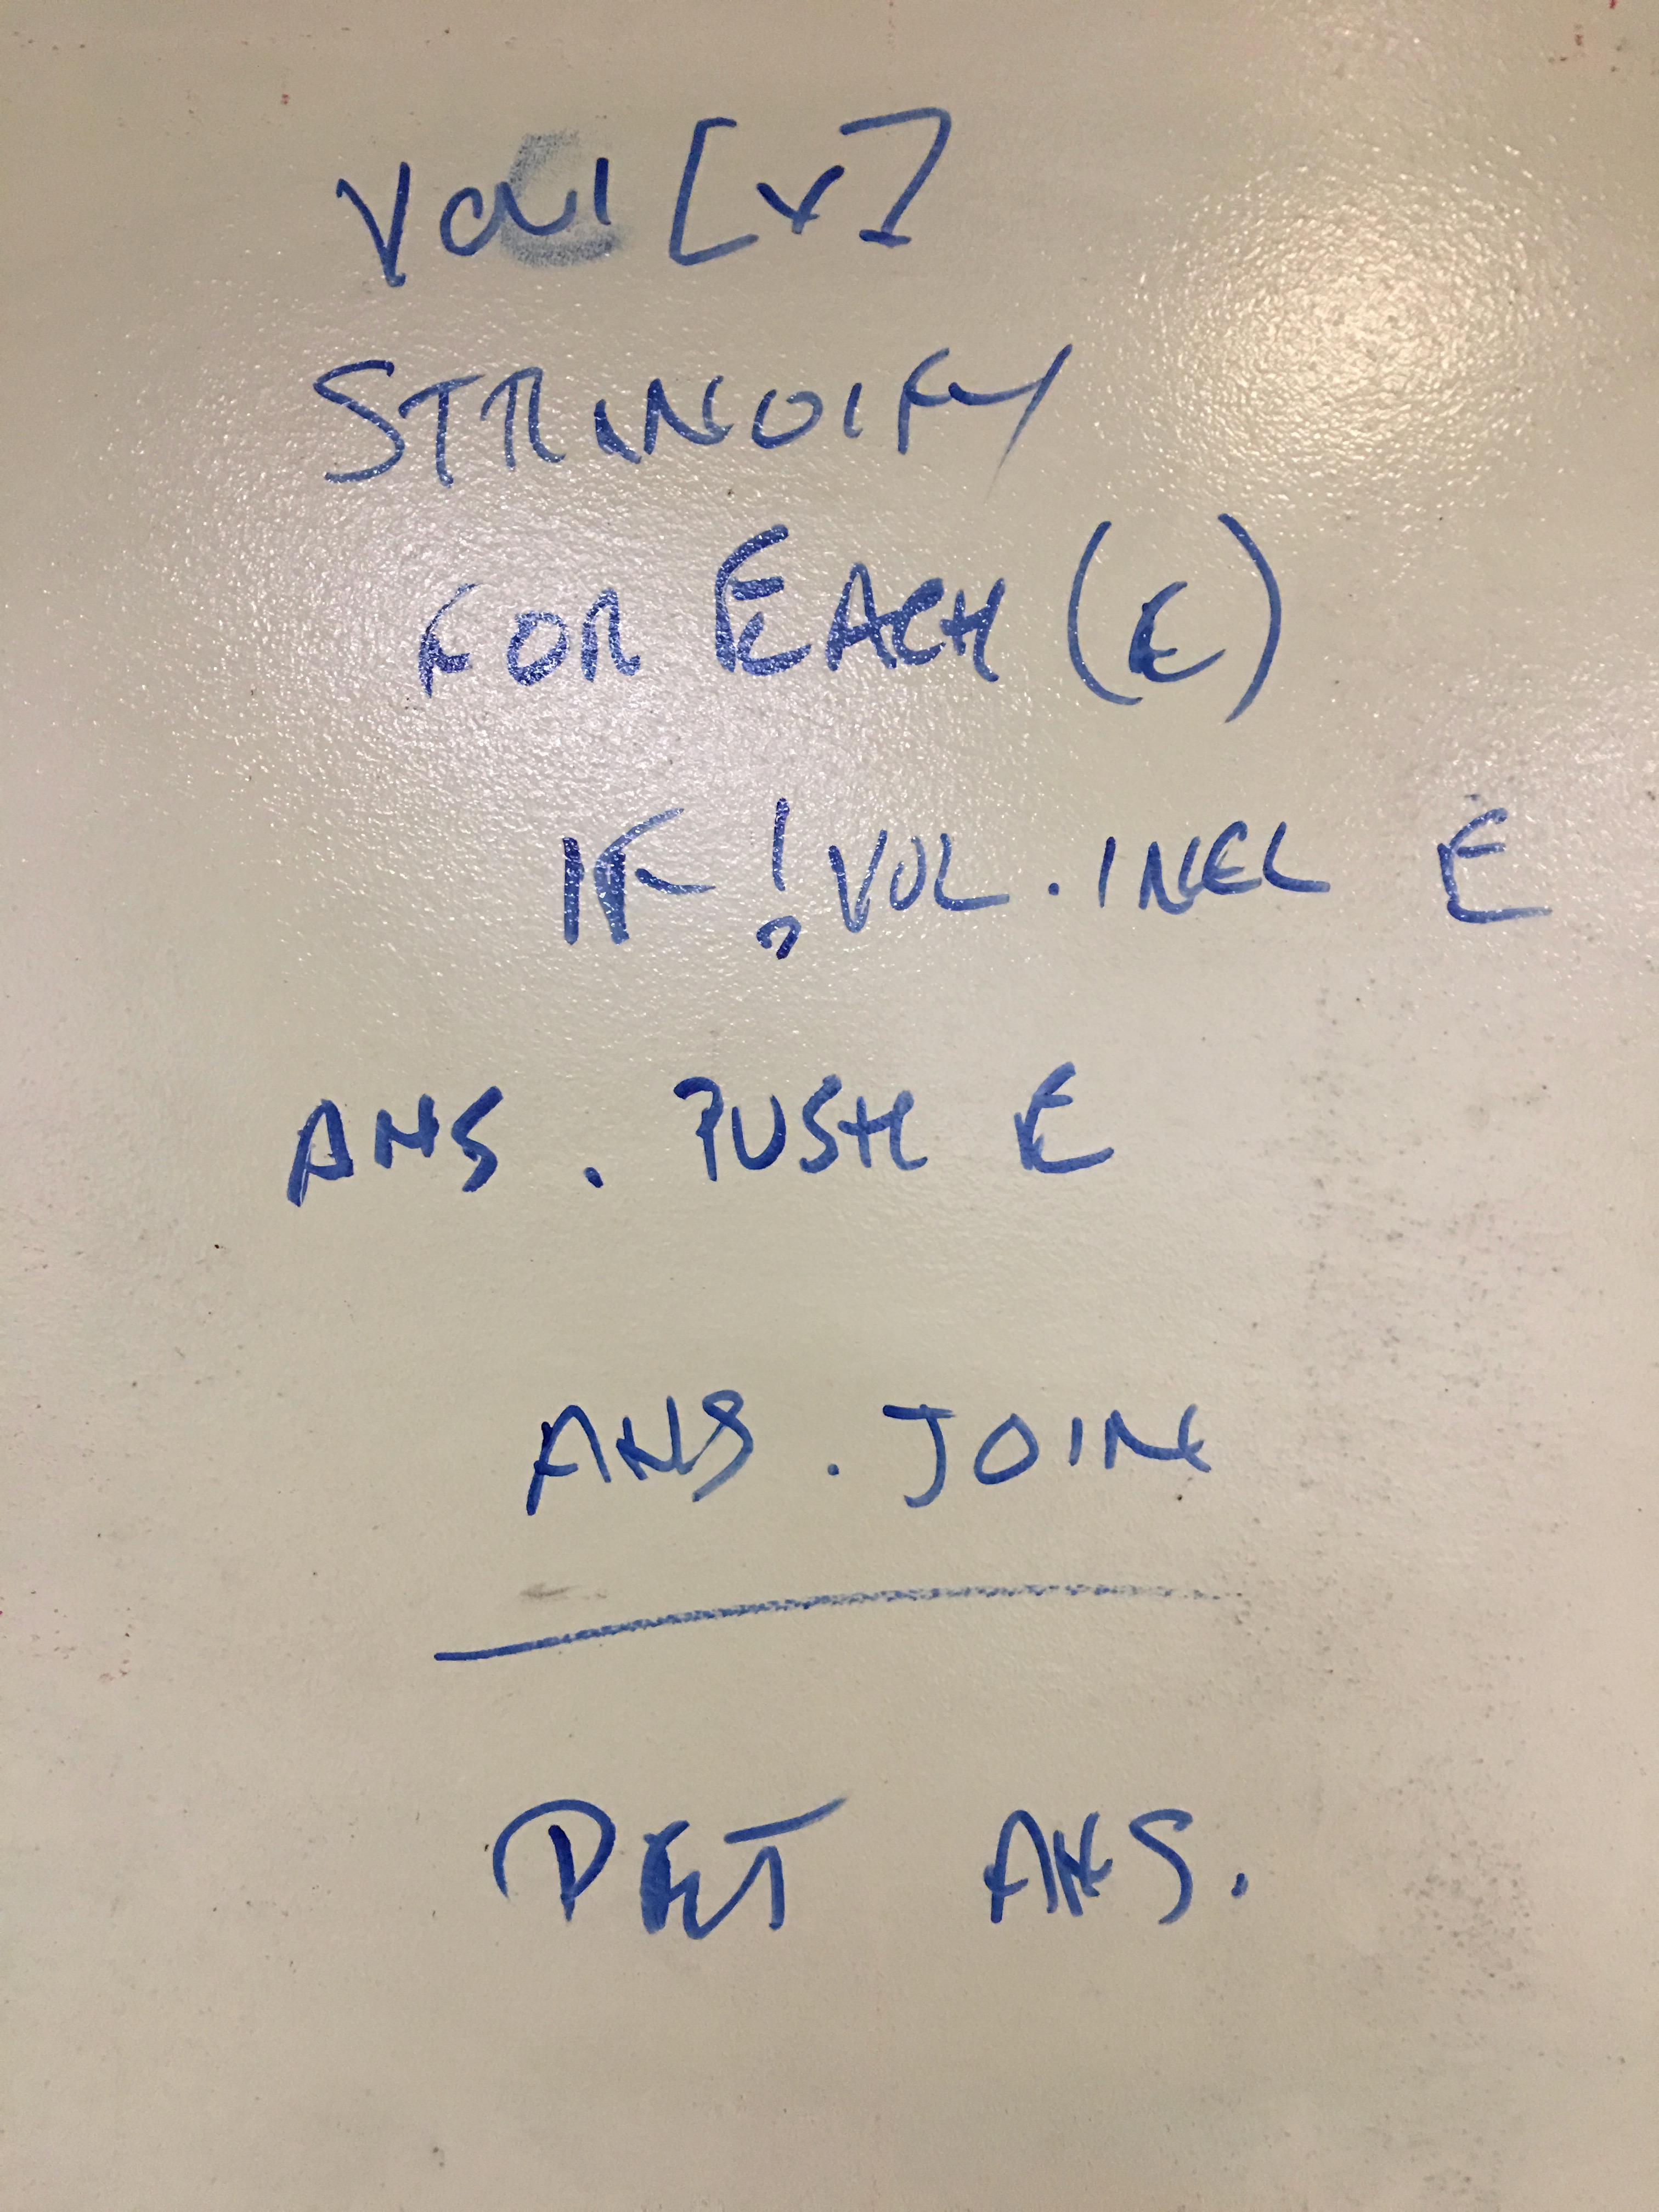 VOUL [X]
STRINGIFY
FOR EACH (E)
IF ! VOL . INCL E
ANS . PUSH E
ANS . JOIN
RET ANS.